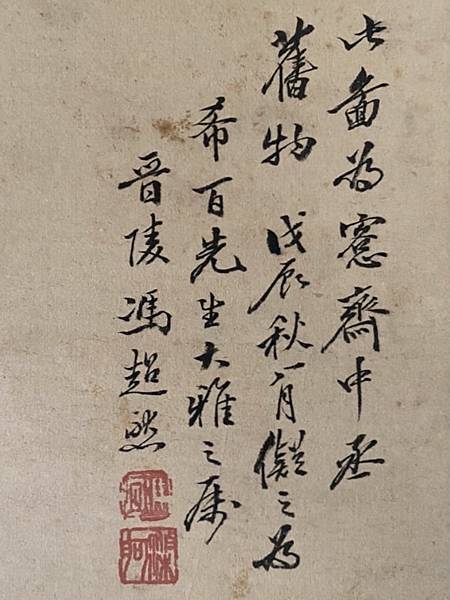 此啚為愙齋中丞
舊物 戊辰秋八月儗之為
希百先生大雅之属
晋陵馮超然
滌舸